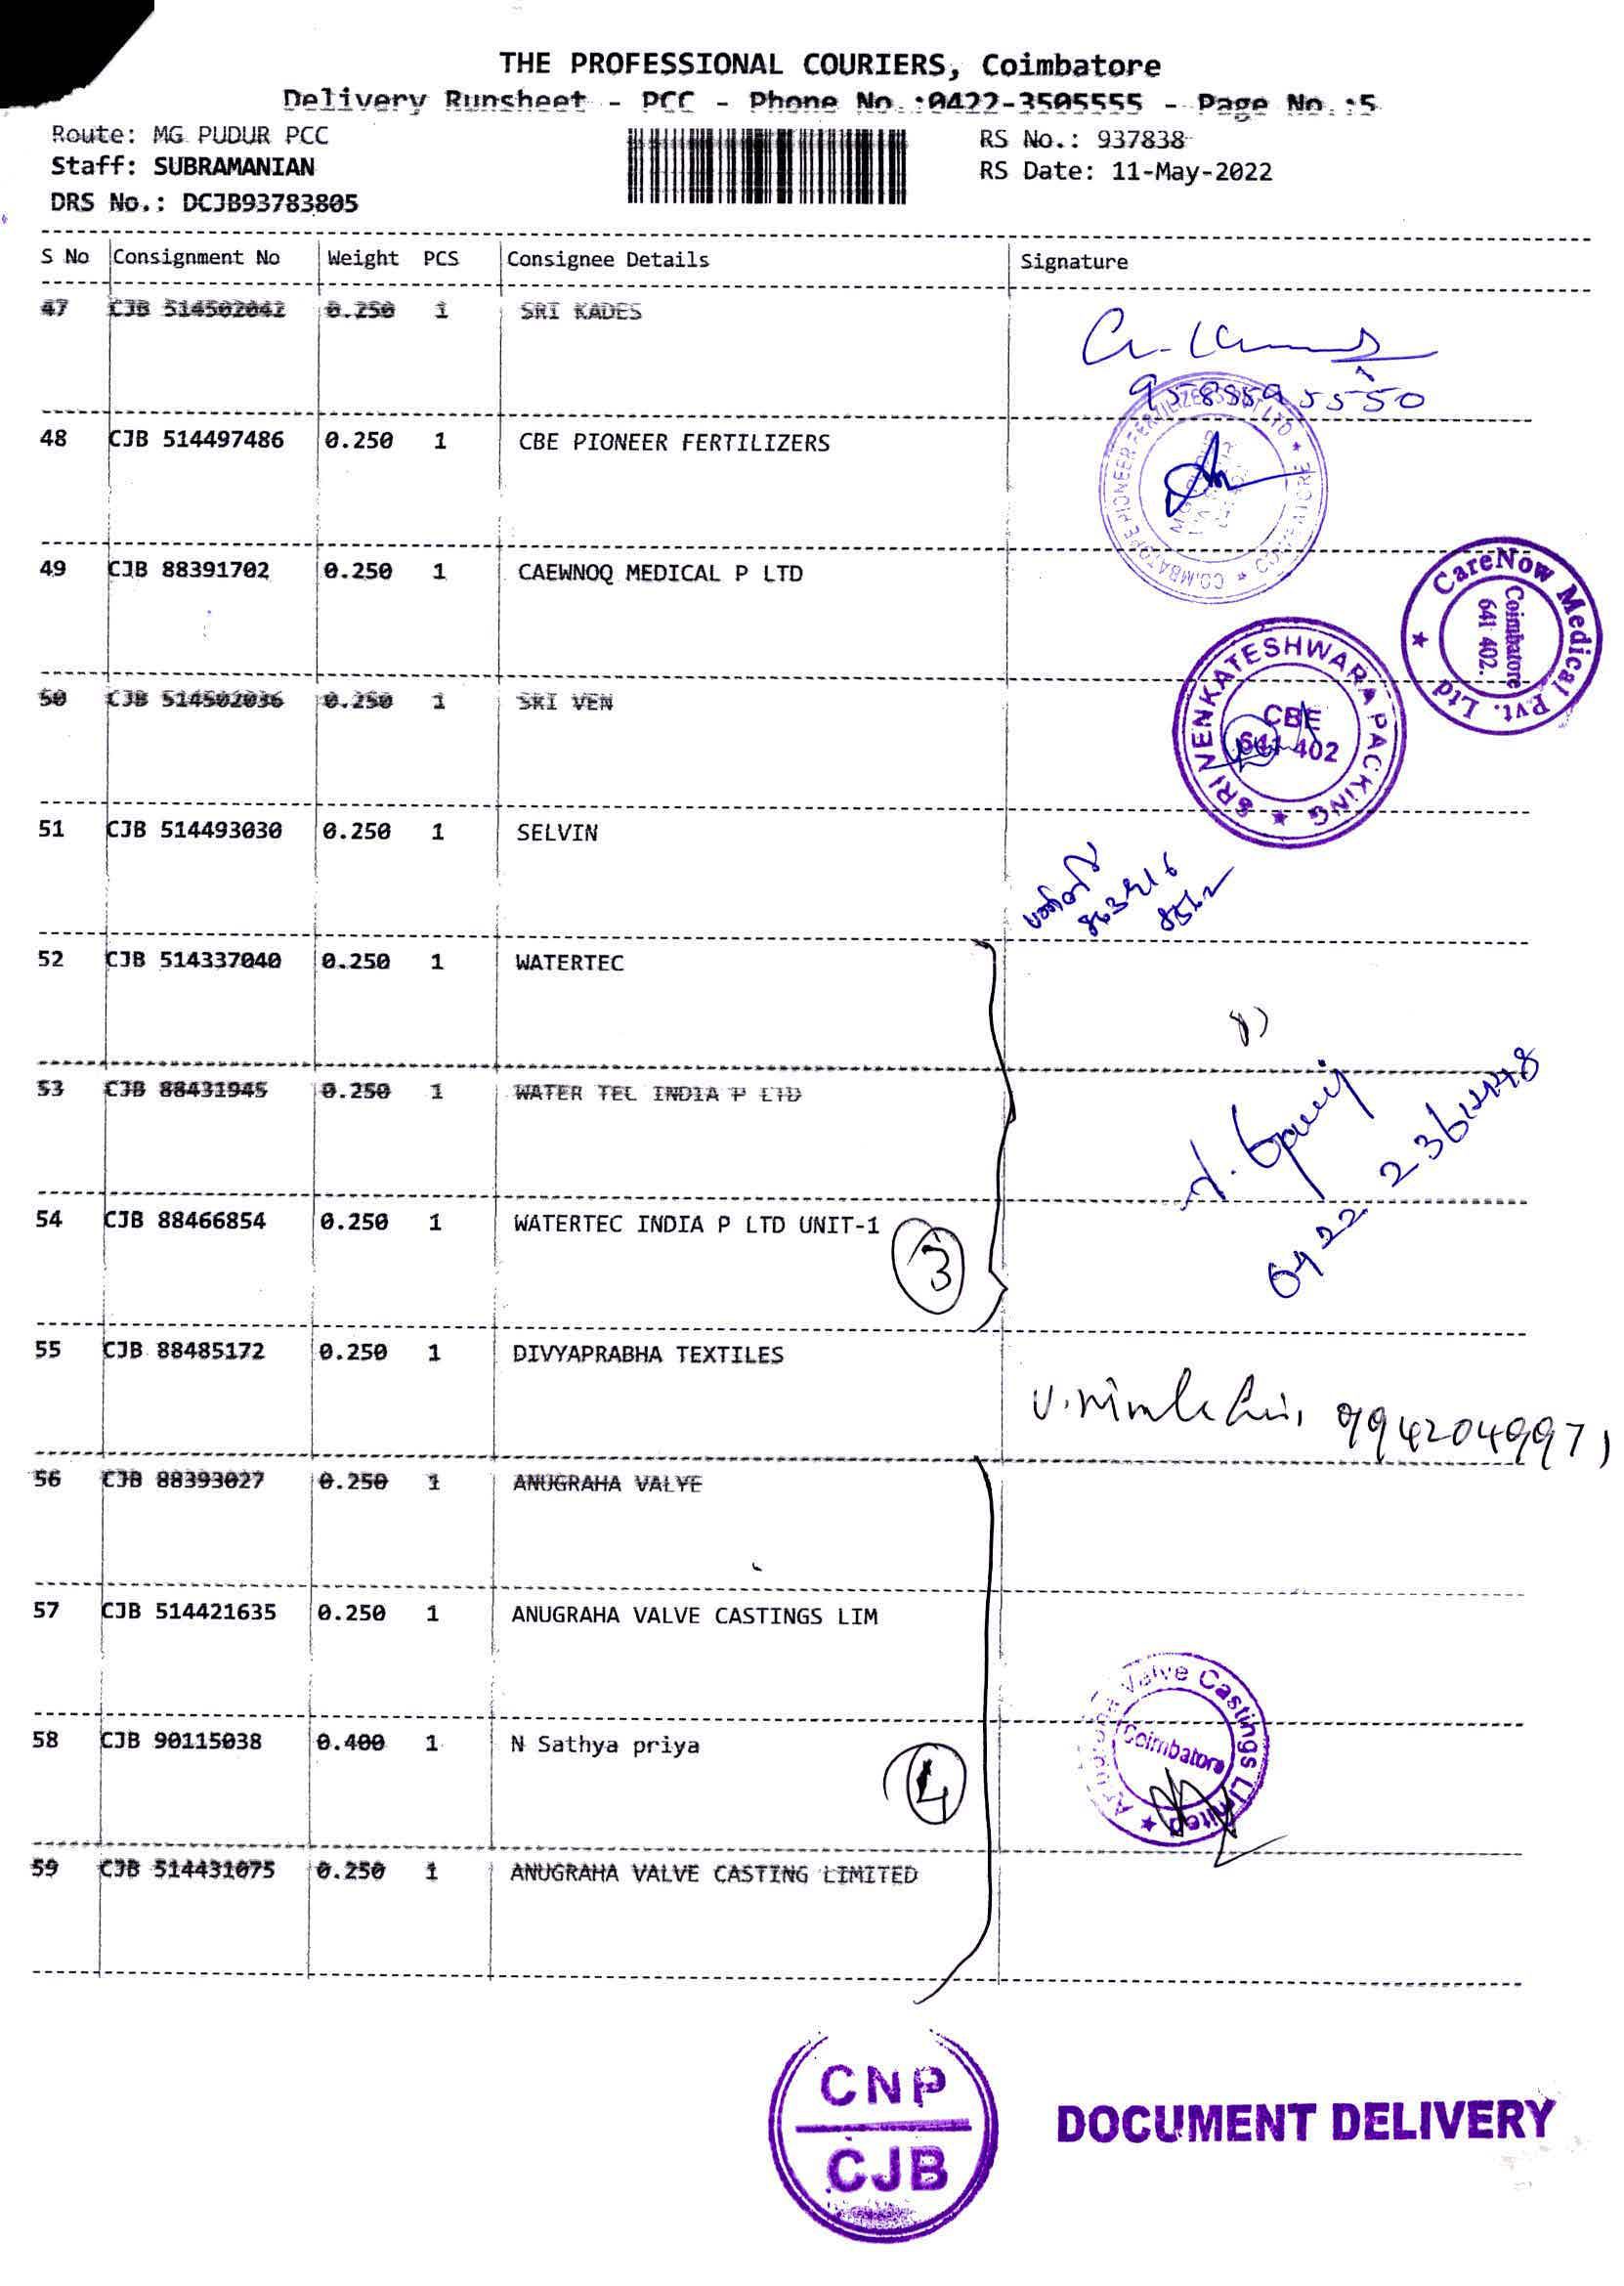 THE PROFESSIONAL COURIERS, Coimbatore
Delivery Runsheet - PCC - Phone No.:0422-3505555 - Page No.:5
Route: MG PUDUR PCC
RS No.: 937838
Staff: SUBRAMANIAN
RS Date: 11-May-2022
DRS No.: DCJB93783805
S No Consignment No Weight PCS Consignee Details Signature
47 CJB 514502042 0.250 1 SRI KADES
48 CJB 514497486 0.250 1 CBE PIONEER FERTILIZERS
COIMBATORE PIONEER FERTILIZERS LTD ★ COIMBATORE ★
49 CJB 88391702 0.250 1 CAEWNOQ MEDICAL P LTD
CareNow Medical Pvt. Ltd ★
Coimbatore
641 402.
50 CJB 514502036 0.250 1 SRI VEN
SRI VENKATESHWARA PACKING ★
CBE
641 402
51 CJB 514493030 0.250 1 SELVIN
52 CJB 514337040 0.250 1 WATERTEC
53 CJB 88431945 0.250 1 WATER TEL INDIA P LTD
54 CJB 88466854 0.250 1 WATERTEC INDIA P LTD UNIT-1
3
0422
55 CJB 88485172 0.250 1 DIVYAPRABHA TEXTILES
9942049971
56 CJB 88393027 0.250 1 ANUGRAHA VALVE
57 CJB 514421635 0.250 1 ANUGRAHA VALVE CASTINGS LIM
58 CJB 90115038 0.400 1 N Sathya priya
4
Anugraha Valve Castings Limited ★
Coimbatore
59 CJB 514431075 0.250 1 ANUGRAHA VALVE CASTING LIMITED
CNP
CJB
DOCUMENT DELIVERY